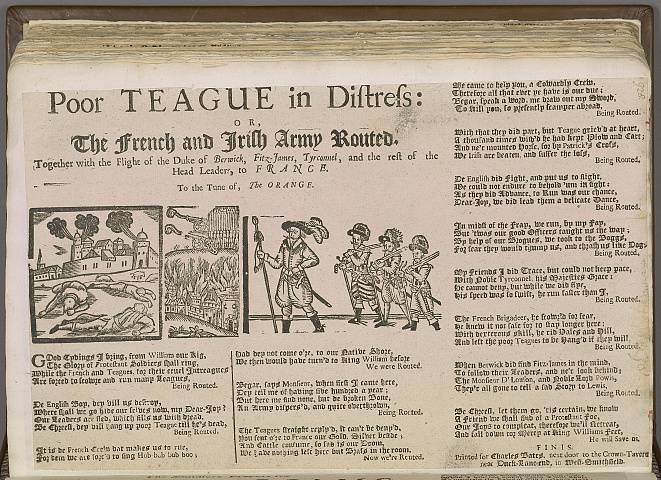 Poor TEAGUE in Diſtreſs:
OR,
The French and Iriſh Army Routed.
Together with the Flight of the Duke of Berwick, Fitz-James, Tyrconnel, and the reſt of the
Head Leaders, to FRANCE.
To the Tune of, The ORANGE.
GOod Tydings I bring, from William our King,
The Glory of Proteſtant Soldiers ſhall ring,
While the French and Teagues, to their cruel Intreagues
Are forced to ſcowre and run many Leagues,
Being Routed.
De Engliſh Boy, dey will us deſtroy,
Where ſhall we go hide our ſelves now, my Dear-Joy?
Our Leaders are fled, which fills us with dread,
By Chreeſt, dey will hang up poor Teague till he's dead,
Being Routed.
It is de French Crew dat makes us to rue,
For dem we are forc'd to ſing Hub bub bub boo;
Had dey not come o're, to our Native Shore,
We then would have turn'd to King William before
We were Routed.
Begar, ſays Monſieur, when firſt I came here,
Dey tell me of having five hundred a year;
But here me find none, but de broken Bone,
An Army diſpers'd, and quite overthrown,
Being Routed.
The Teagues ſtraight reply'd, it can't be deny'd,
You ſent o're to France our Gold, Silver beſide;
And Cattle conſume, ſo ſad is our Doom,
We have nothing left here but Braſs in the room,
Now we're Routed.
We came to help you, a Cowardly Crew,
Therefore all that ever ye have is our due;
Begar, ſpeak a word, me draw out my Sword,
To kill you, ſo preſently ſcamper aboard,
Being Routed.
With that they did part, but Teague griev'd at heart,
A thouſand times wiſh'd he had kept Plow and Cart;
And ne'r mounted Horſe, for by Patrick's Croſs,
We Iriſh are beaten, and ſuffer the loſs,
Being Routed.
De Engliſh did Fight, and put us to flight,
We could not endure to behold 'um in ſight;
As they did Advance, to Run was our chance,
Dear-Joy, we did lead them a delicate Dance,
Being Routed.
In midſt of the Fray, we run, by my Fay,
But 'twas our good Officers taught us the way;
By help of our Brogues, we took to the Boggs,
For fear they would thump us, and thraſh us like Dogs
Being Routed.
My Friends I did Trace, but could not keep pace,
With Noble Tyrconnel, his Majeſties Grace;
He cannot deny, but while we did fly,
His ſpeed was ſo ſwift, he run faſter than I,
Being Routed.
The French Brigadeer, he ſcowr'd for fear,
He knew it not ſafe for to ſtay longer here;
With dexterous ſkill, he rid Dales and Hill,
And left the poor Teagues to be Hang'd if they will
Being Routed.
When Berwick did find Fitz-James in the mind,
To follow their Leaders, and ne'r look behind;
The Monſieur D' Louſon, and Noble Lord Powis,
They're all gone to tell a ſad Story to Lewis,
Being Routed.
By Chreeſt, let them go, 'tis certain, we know
A Friend we ſhall find of a Proteſtant Foe,
Our Joys to compleat, therefore we'll retreat,
And fall down for Mercy at King Williams Feet,
He will Save us.
FINIS.
Printed for Charles Bates, next door to the Crown-Tavern
near Duck-Lane-end, in Weſt-Smithfield.